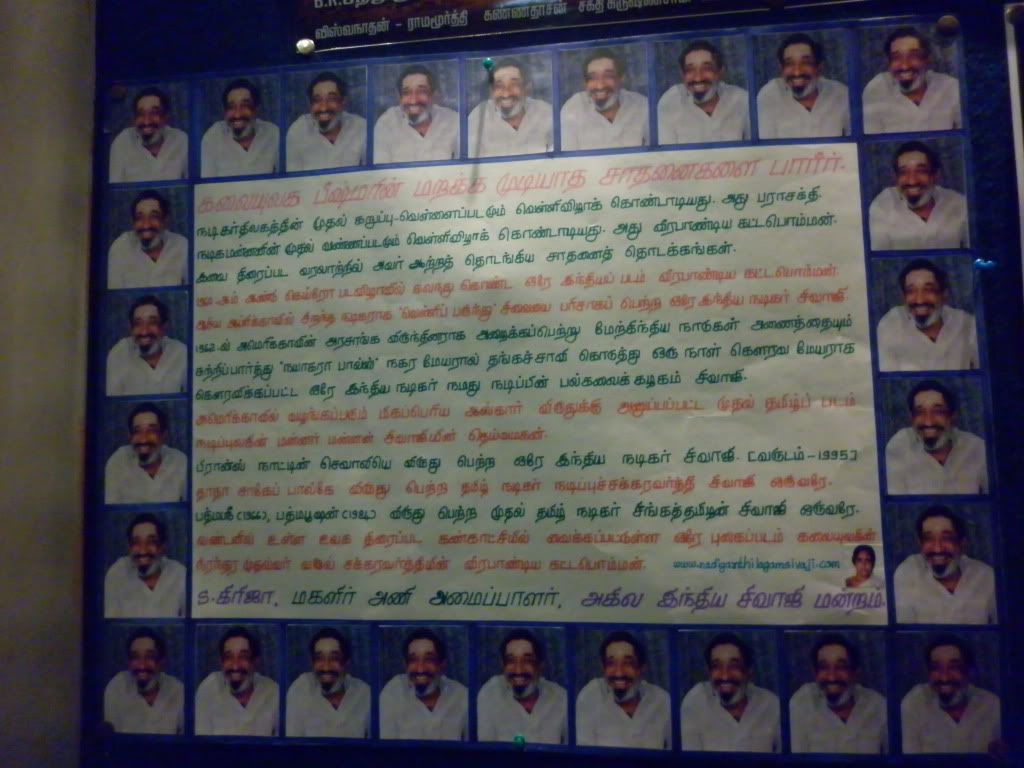 விஸ்வநாதன் - ராமமூர்த்தி கண்ணதாசன்
கலையுலக பீஷ்மரின் மறக்க முடியாத சாதனைகளை பாரீர்.
நடிகர்திலகத்தின் முதல் கறுப்பு-வெள்ளைப்படமும் வெள்ளிவிழாக் கொண்டாடியது. அது பராசக்தி.
நடிகமன்னனின் முதல் வண்ணப்படமும் வெள்ளிவிழாக் கொண்டாடியது. அது வீரபாண்டிய கட்டபொம்மன்.
இவை திரைப்பட வரலாற்றில் அவர் ஆற்றத் தொடங்கிய சாதனைத் தொடக்கங்கள்.
ஆம் ஆண்டு கெய்ரோ படவிழாவில் கலந்து கொண்ட ஒரே இந்தியப் படம் வீரபாண்டிய கட்டபொம்மன்.
ஆசிய ஆப்ரிக்காவில் சிறந்த நடிகராக சிலையை பரிசாகப் பெற்ற ஒரே இந்திய நடிகர் சிவாஜி.
1962-ல் அமெரிக்காவின் அரசாங்க விருந்தினராக அழைக்கப்பெற்று மேற்கிந்திய நாடுகள் அனைத்தையும்
சுற்றிப்பார்த்து "நயாகரா பால்ஸ்" நகர மேயரால் தங்கச்சாவி கொடுத்து ஒரு நாள் கௌரவ மேயராக
கௌரவிக்கப்பட்ட ஒரே இந்திய நடிகர் நமது நடிப்பின் பல்கலைக் கழகம் சிவாஜி.
அமெரிக்காவில் வழங்கப்படும் மிகப்பெரிய ஆஸ்கார் விருதுக்கு அனுப்பப்பட்ட முதல் தமிழ்ப் படம்
நடிப்புலகின் மன்னர் மன்னன் சிவாஜியின் தெய்வமகன்.
பிரான்ஸ் நாட்டின் செவாலியெ விருது பெற்ற ஒரே இந்திய நடிகர் சிவாஜி. [வருடம் - 1995]
தாதா சாகேப் பால்கே விருது பெற்ற தமிழ் நடிகர் நடிப்புச்சக்கரவர்த்தி சிவாஜி ஒருவரே.
பத்மஸ்ரீ (1966), பத்மபூஷன் (1984) விருது பெற்ற முதல் தமிழ் நடிகர் சிங்கத்தமிழன் சிவாஜி ஒருவரே.
உள்ள உலக திரைப்பட கண்காட்சியில் வைக்கப்பட்டுள்ள ஒரே புலகப்படம் கலையுலகின்
நிரந்தர முதல்வர் வசூல் சக்கரவர்த்தியின் வீரபாண்டிய கட்டபொம்மன். www.nadigarthilagamsivaji.com
S.கிரிஜா, மகளிர் அணி அமைப்பாளர், அகில இந்திய சிவாஜி மன்றம்.